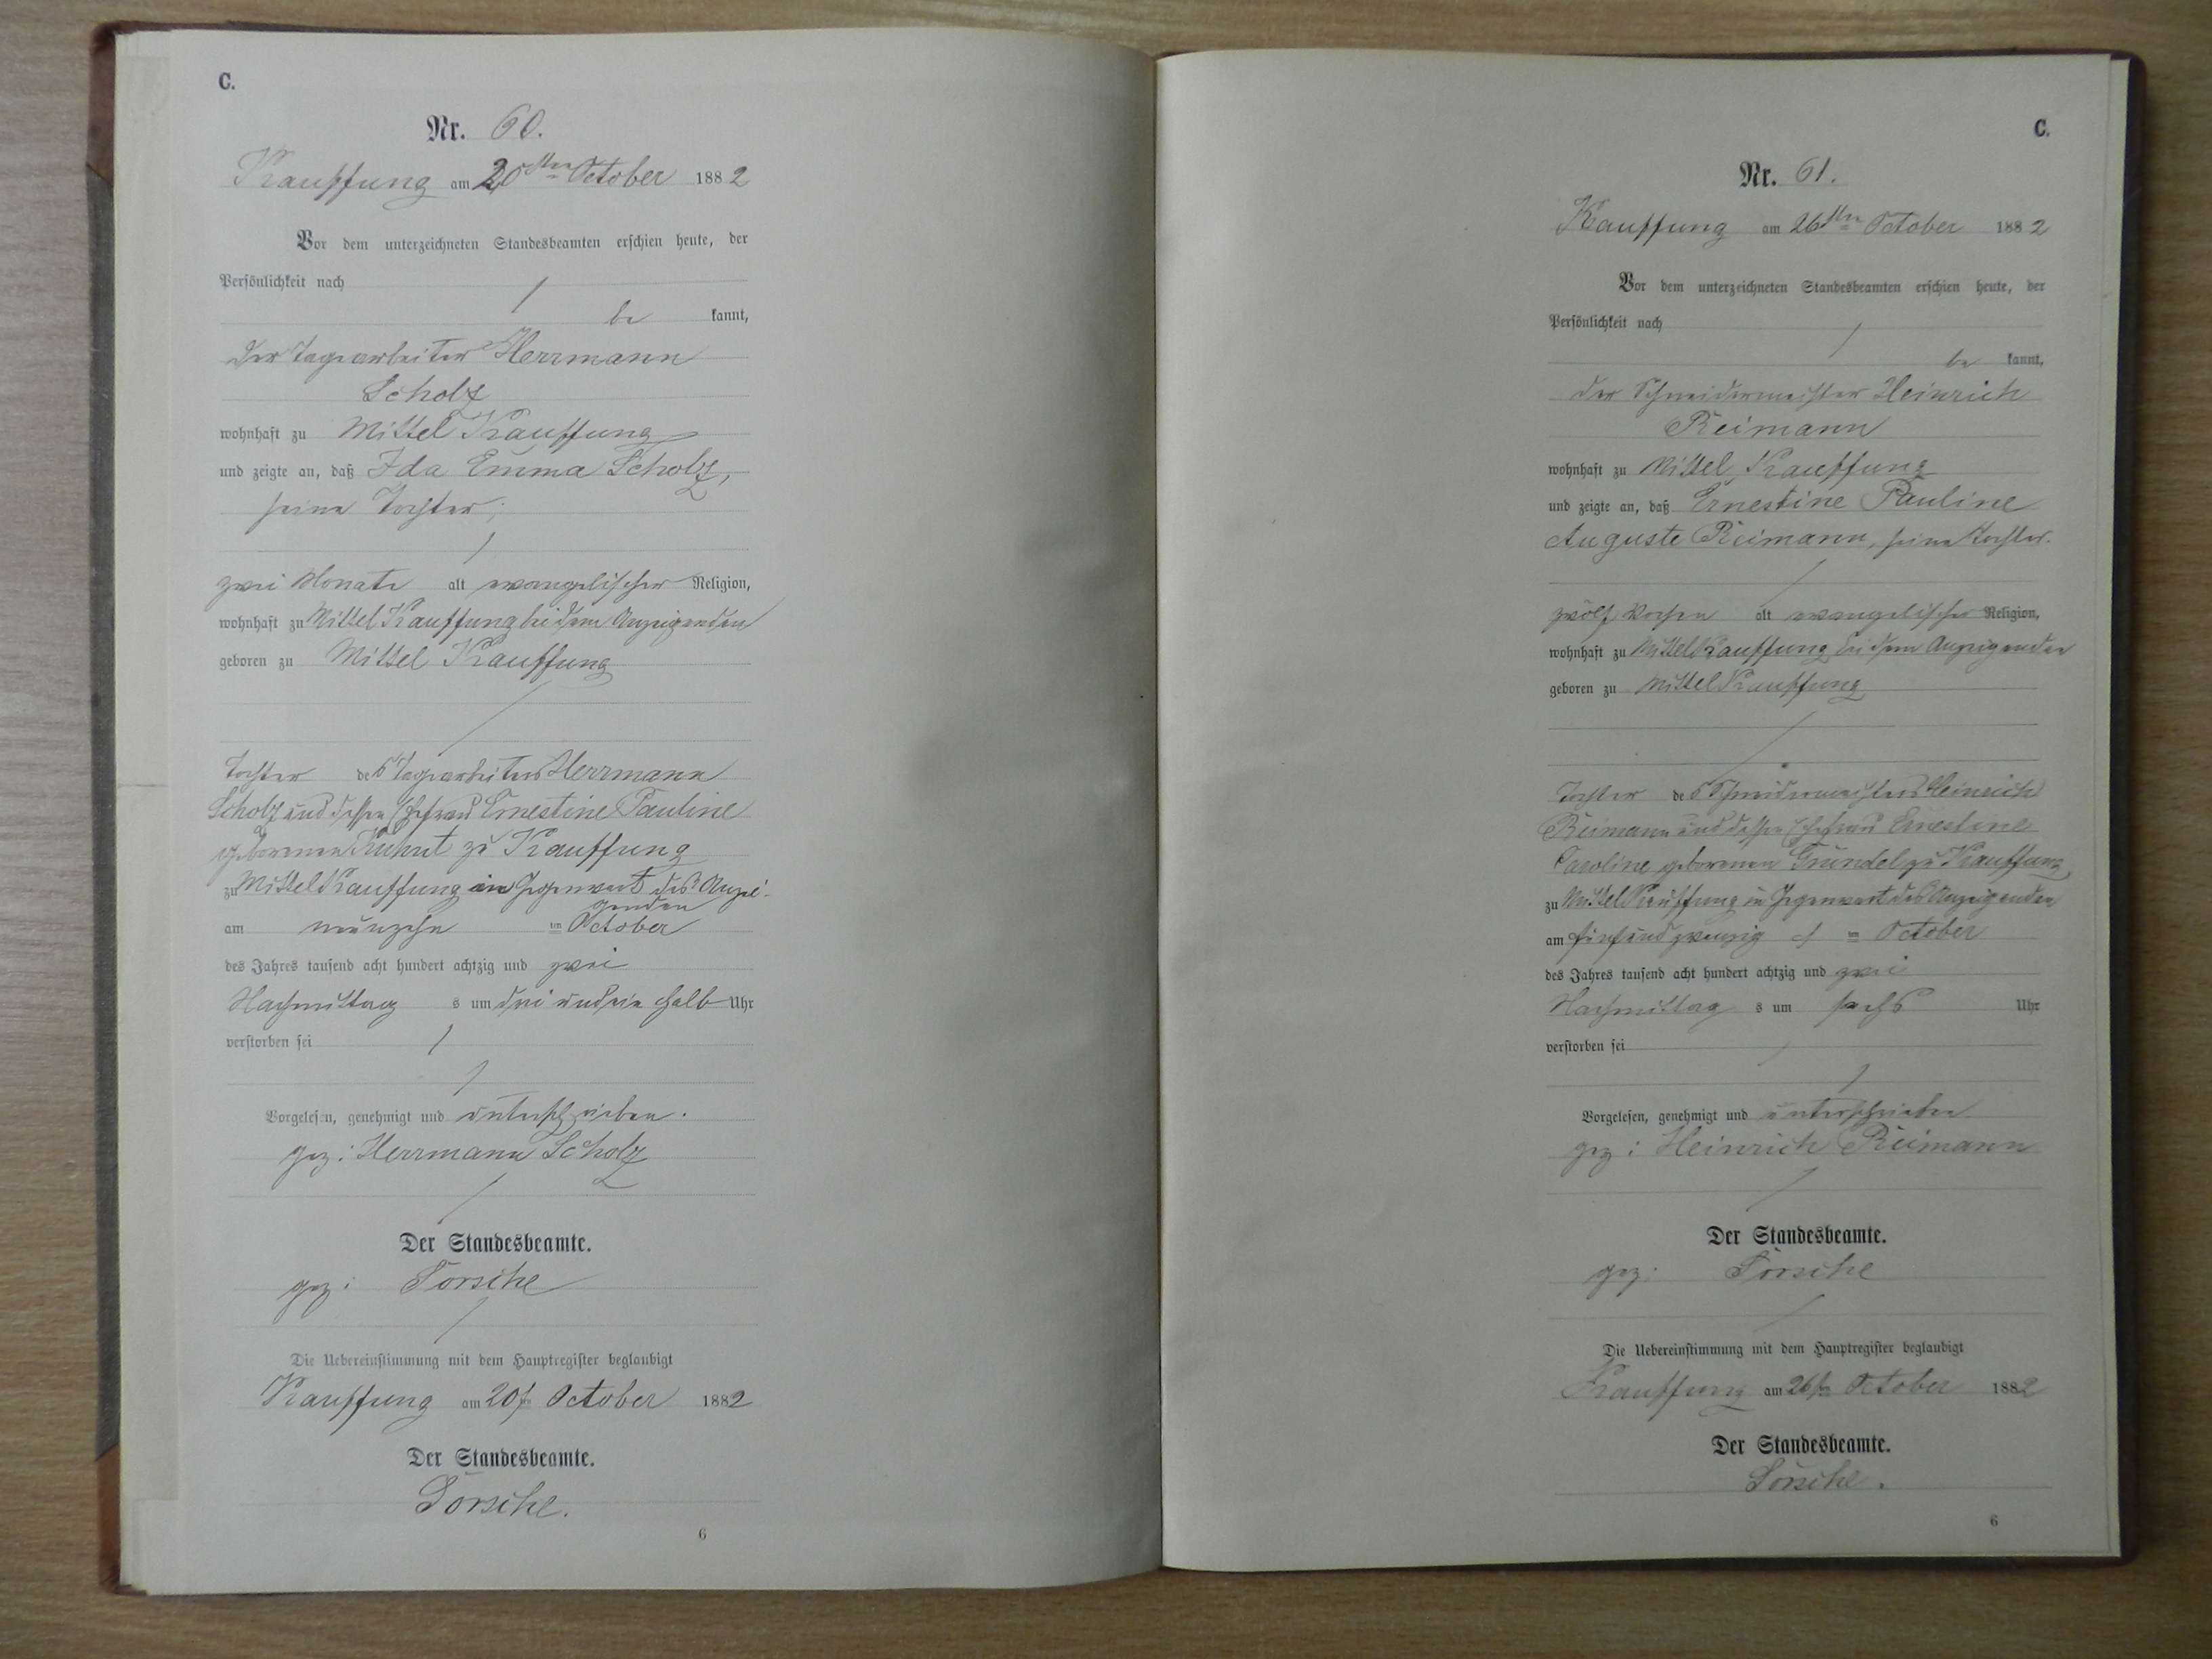 C.
Nr. 60.
Kauffung am 20ten October 1882
Vor dem unterzeichneten Standesbeamten erschien heute, der
Persönlichkeit nach
be kannt,
der Tagearbeiter Herrmann
Scholz
wohnhaft zu Mittel Kauffung
und zeigte an, daß Ida Emma Scholz,
seine Tochter,
zwei Monate alt evangelischer Religion,
wohnhaft zu Mittel Kauffung bei dem Anzeigenden
geboren zu Mittel Kauffung
Tochter des Tagearbeiters Herrmann
Scholz und dessen Ehefrau Ernestine Pauline
geborenen zu Kauffung
zu Mittel Kauffung in Gegenwart des Anzei-
genden
am neunzehn ten October
des Jahres tausend acht hundert achtzig und zwei
Nachmittag s um drei und ein halb Uhr
verstorben sei
Vorgelesen, genehmigt und unterschrieben.
gez: Herrmann Scholz
Der Standesbeamte.
gez:
Die Uebereinstimmung mit dem Hauptregister beglaubigt
Kauffung am 20ten October 1882
Der Standesbeamte.
6
C.
Nr. 61.
Kauffung am 26ten October 1882
Vor dem unterzeichneten Standesbeamten erschien heute, der
Persönlichkeit nach
be kannt,
der Schneidermeister Heinrich
Reimann
wohnhaft zu Mittel Kauffung
und zeigte an, daß Ernestine Pauline
Auguste Reimann, seine Tochter.
zwölf Wochen alt evangelischer Religion,
wohnhaft zu Mittel Kauffung bei dem Anzeigenden
geboren zu Mittel Kauffung
Tochter des Schneidermeisters Heinrich
Reimann und dessen Ehefrau Ernestine
Caroline geborenen Gründel zu Kauffung
zu Mittel Kauffung in Gegenwart des Anzeigenden
am fünfundzwanzig st ten October
des Jahres tausend acht hundert achtzig und zwei
Nachmittag s um sechs Uhr
verstorben sei
Vorgelesen, genehmigt und unterschrieben
gez: Heinrich Reimann
Der Standesbeamte.
gez:
Die Uebereinstimmung mit dem Hauptregister beglaubigt
Kauffung am 26ten October 1882
Der Standesbeamte.
6